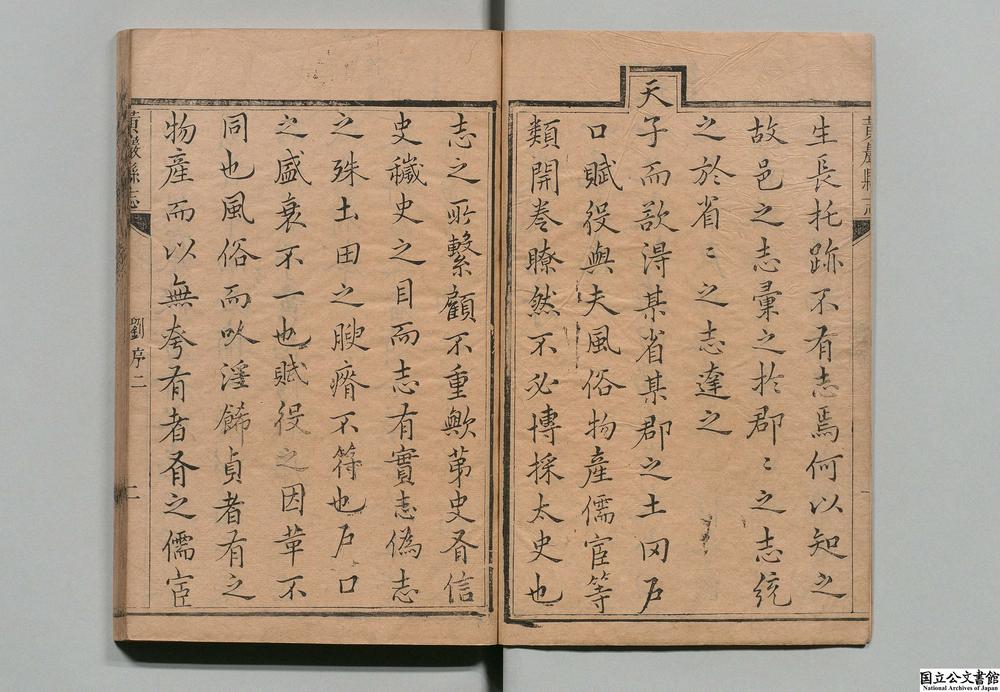 黃巖縣志
生長托跡不有志焉何以知之
故邑之志彙之扵郡〻之志統
之於省〻之志達之
天
子而欲淂某省某郡之土田戶
口賦役與夫風俗物產儒宦等
類開卷瞭然不必博採太史也
志之所繫顧不重歟第史有信
史穢史之目而志有實志偽志
之殊土田之腴瘠不符也戶口
之盛衰不一也賦役之因革不
同也風俗而以淫餙貞者有之
物產而以無夸有者有之儒宦
黃巖縣志
劉序二
二
国立公文書館
National Archives of Japan